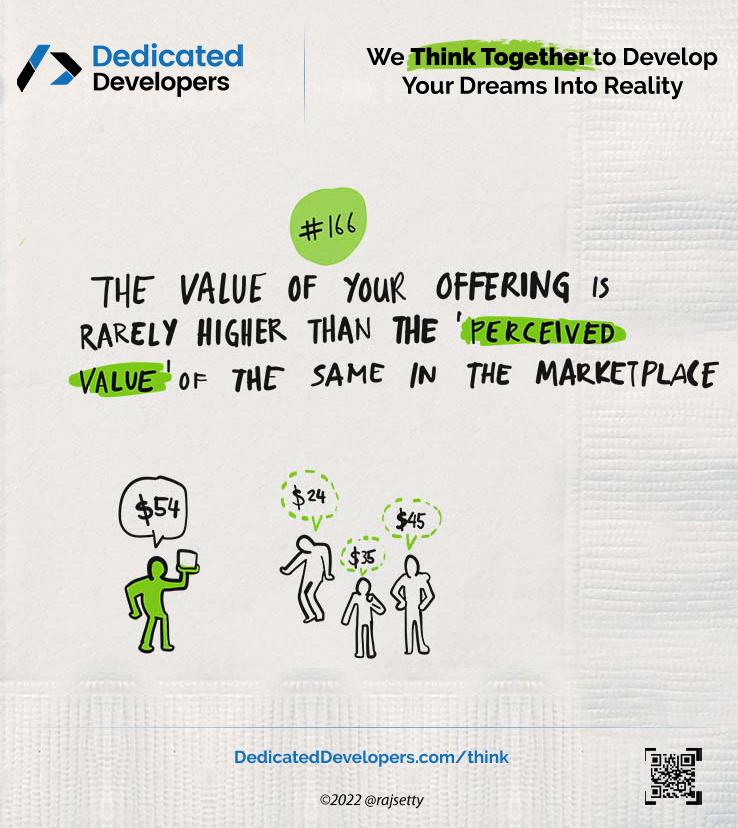 Dedicated
Developers
We Think Together to Develop
Your Dreams Into Reality
#166
THE VALUE OF YOUR OFFERING IS
RARELY HIGHER THAN THE 'PERCEIVED
VALUE' OF THE SAME IN THE MARKETPLACE
$54
$24
$35
$45
DedicatedDevelopers.com/think
©2022 @rajsetty